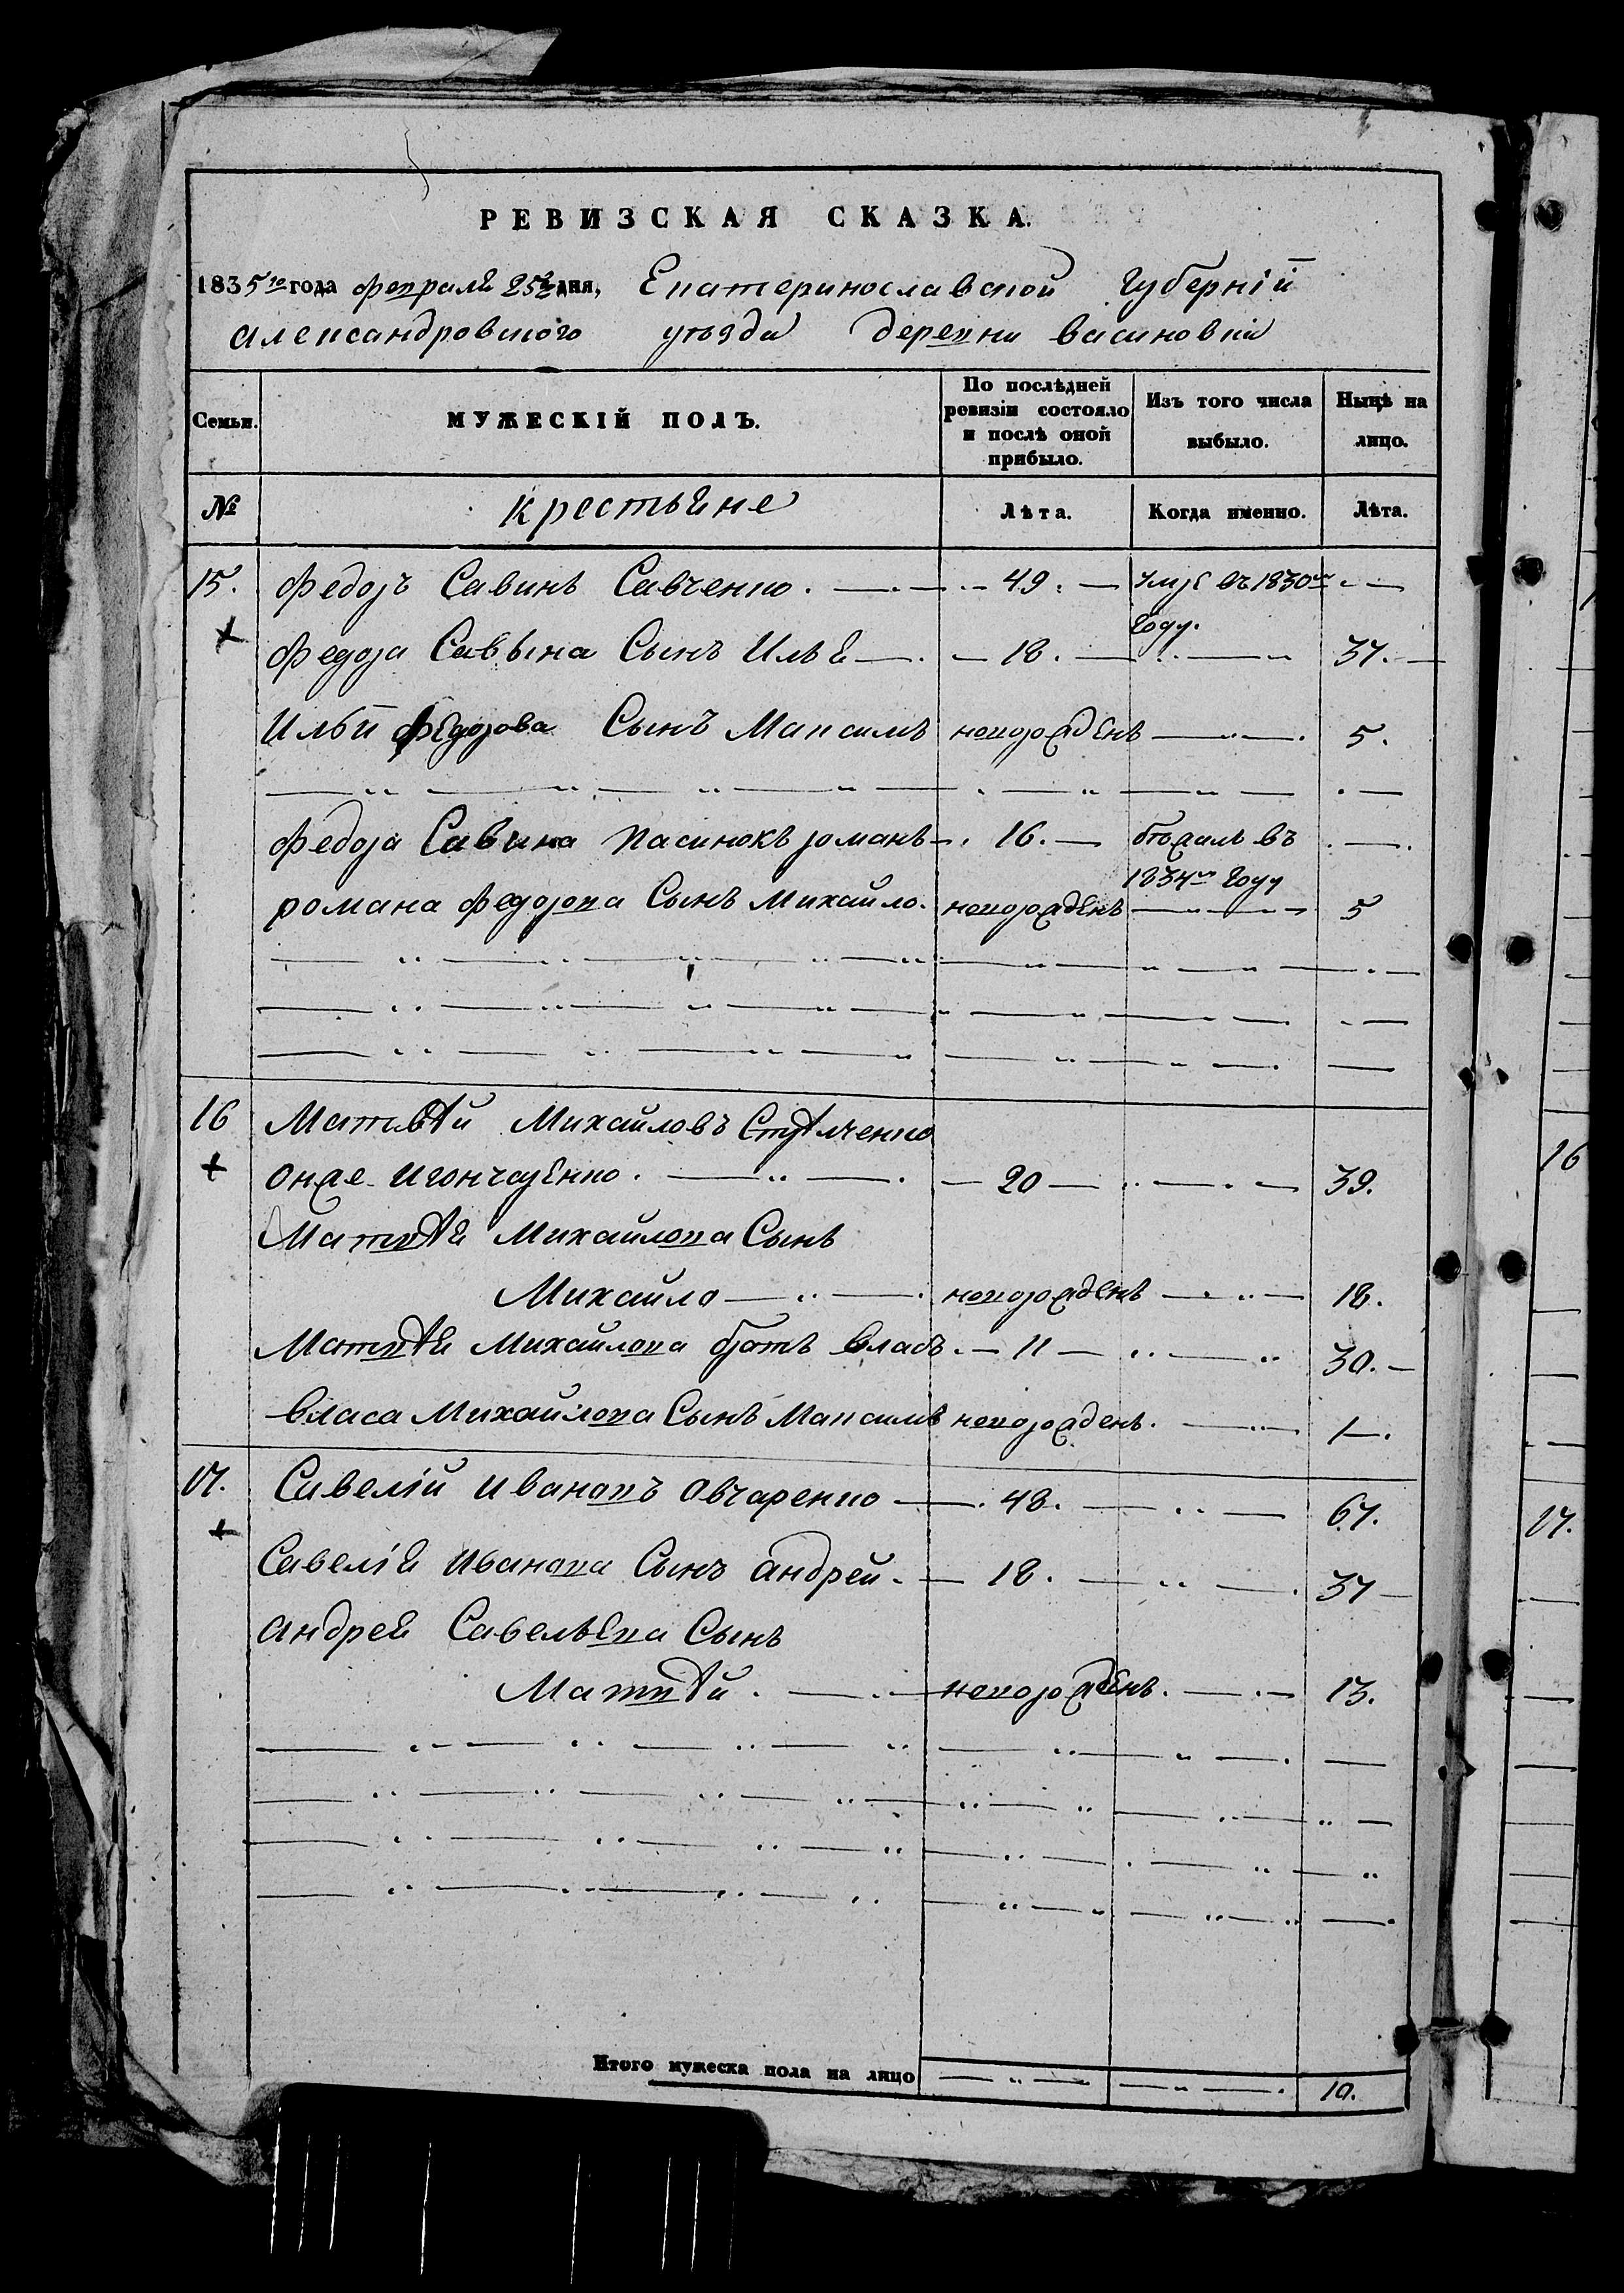 РЕВИЗСКАЯ СКАЗКА.
1835го года февраля 25го дня, Екатеринославской Губерніи
Александровского уѣзда деревни васиновки
Семьи. МУЖЕСКІЙ ПОЛЪ. По послѣдней ревизіи состояло и послѣ оной прибыло. Изъ того числа выбыло. Нынѣ на лицо.
№ крестьяне Лѣта. Когда именно. Лѣта.
15. Федоръ Савинъ Савченко. 49. умре въ 1830м Году.
Федора Саввина Сынъ Илья 18. 37.
Ильи Федорова Сынъ Максимъ новорожденъ 5.
Федора Савина пасинокъ романъ 16. бѣжалъ въ 1834м Году
романа Федорова Сынъ Михайло. новорожденъ 5
16 Матвѣй Михайловъ
онже и гончаренко. 20 39.
Матвѣя Михайлова Сынъ
Михайло новорожденъ 18.
Матвѣя Михайлова братъ власъ. 11 30.
власа Михайлова Сынъ Максимъ новорожденъ. 1.
17. Савелій ивановъ овчаренко 48. 67.
Савелія иванова Сынъ андрей. 18. 37
андрея Савельева Сынъ
Матвѣй. новорожденъ. 13.
Итого мужеска пола на лицо 10.
16
17.